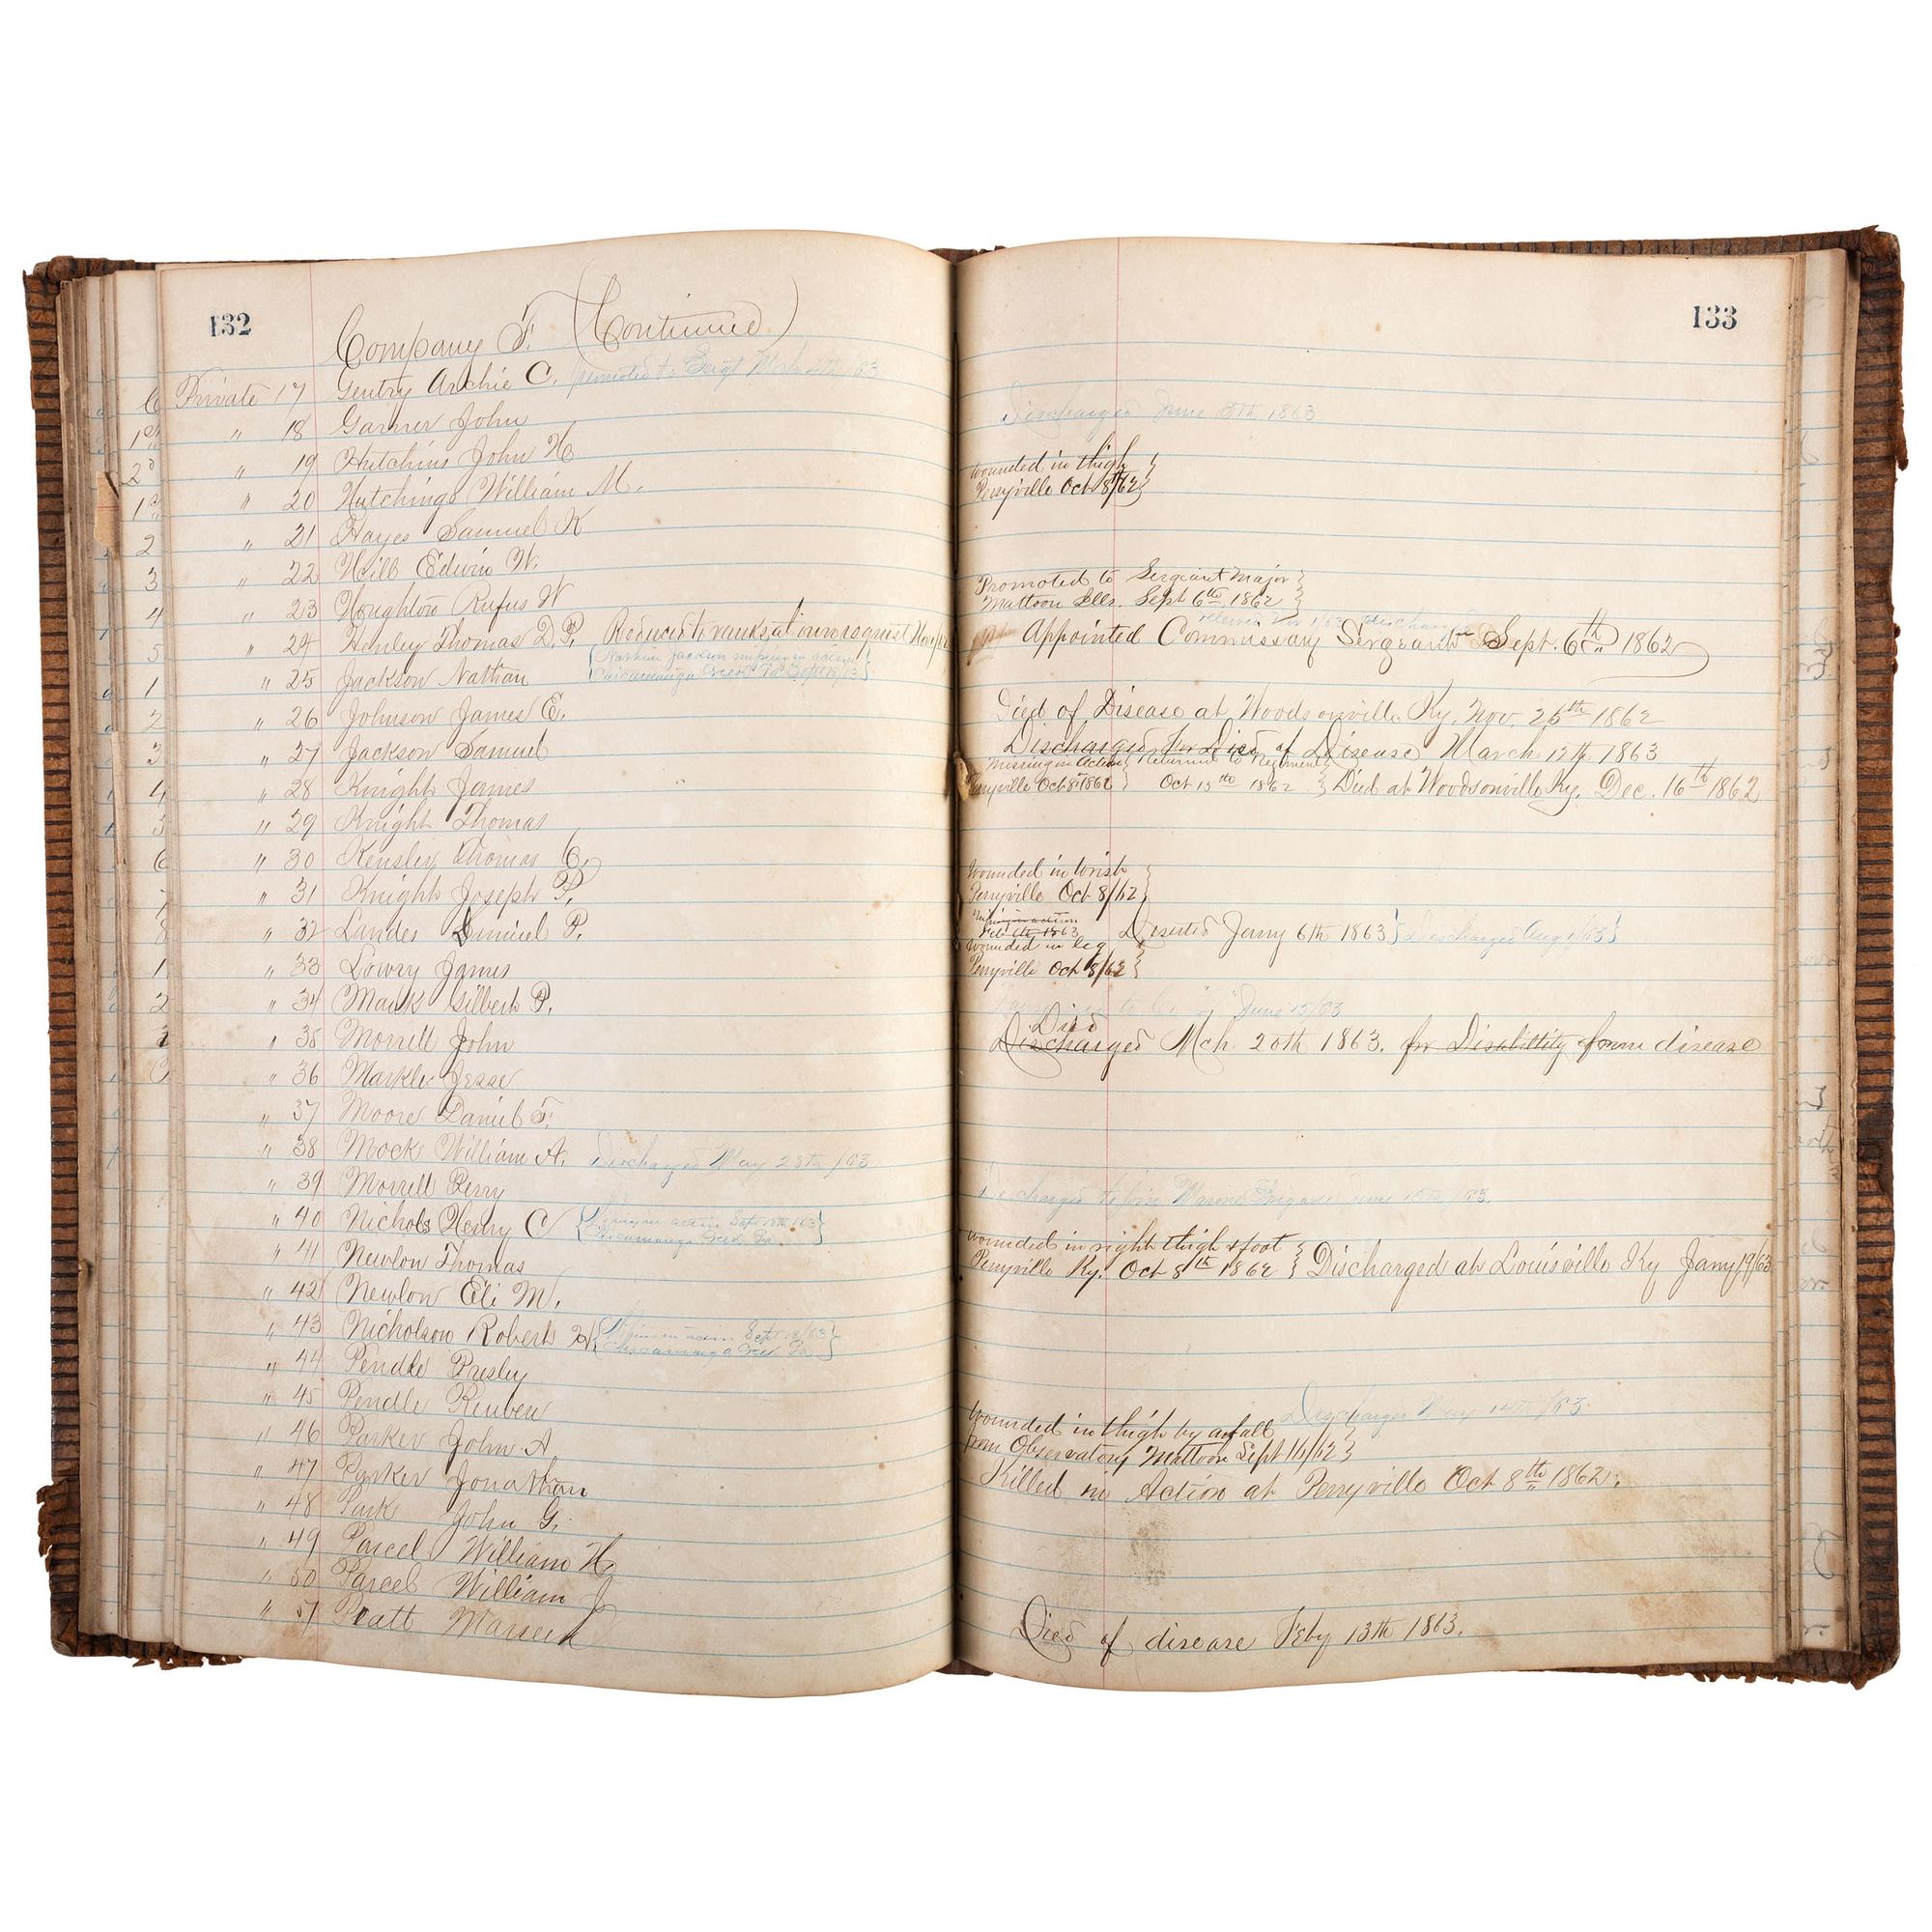 132
Company F. (Continued)
Private 17 Gentry Archie C. promoted to Sergt
" 18 Garner John
" 19 Hutchins John H
" 20 Hutchings William M.
" 21 Hayes Samuel K
" 22 Hill Edwin W.
" 23 Houghton Rufus W
" 24 Henley Thomas D. P. Reduced to ranks at own request
" 25 Jackson Nathan {Nathan Jackson missing in action
Chicamauga Creek Ga Sept 18/63}
" 26 Johnson James E.
" 27 Jackson Samuel
" 28 Knight James
" 29 Knight Thomas
" 30 Kensler Thomas C.
" 31 Knight Joseph P.
" 32 Landes Daniel P.
" 33 Lowry James
" 34 Mauk Gilbert P.
" 35 Morrell John
" 36 Markle Jesse
" 37 Moore Daniel F.
" 38 Mock William A. Discharged May 28th /63
" 39 Morrell Perry
" 40 Nichols Henry C {Missing in action Sept 18th /63}
Chicamauga Creek Ga.
" 41 Newlon Thomas
" 42 Newlon Eli M.
" 43 Nicholson Robert H {Missing in action Sept 18/63}
Chicamauga Creek Ga.
" 44 Pendle Presley
" 45 Pendle Reuben
" 46 Parker John A
" 47 Parker Jonathan
" 48 Park John G.
" 49 Parcel William H.
" 50 Parcel William J
" 51 Pratt
133
Discharged June 1863
wounded in thigh
Perryville Oct 8/62}
Promoted to Sergeant Major
Mattoon Ills. Sept 6th 1862
Appointed Commissary Sergeant Sept. 6th 1862
Died of Disease at Woodsonville Ky. Nov. 25th 1862
Discharged for Disease March 12th 1863
Missing in Action} Returned to Regiment
Perryville Oct 8th 1862} Oct 15th 1862 } Died at Woodsonville Ky. Dec. 16th 1862
wounded in wrist
Perryville Oct 8/62}
Missing in action
1863 Deserted Jany 6th 1863} Discharged Aug 1/63}
wounded in leg
Perryville Oct 8/62}
to June 15/63
Died
Discharged Mch. 20th 1863. for Disability from disease
Discharged to join Marine Brigade June 1863.
wounded in right thigh & foot
Perryville Ky. Oct 8th 1862 } Discharged at Louisville Ky Jany 19/63
Discharged May 14th /63.
wounded in thigh by a fall
from Observatory Mattoon Sept 16/62}
Killed in Action at Perryville Oct 8th 1862.
Died of disease Feby 13th 1863.